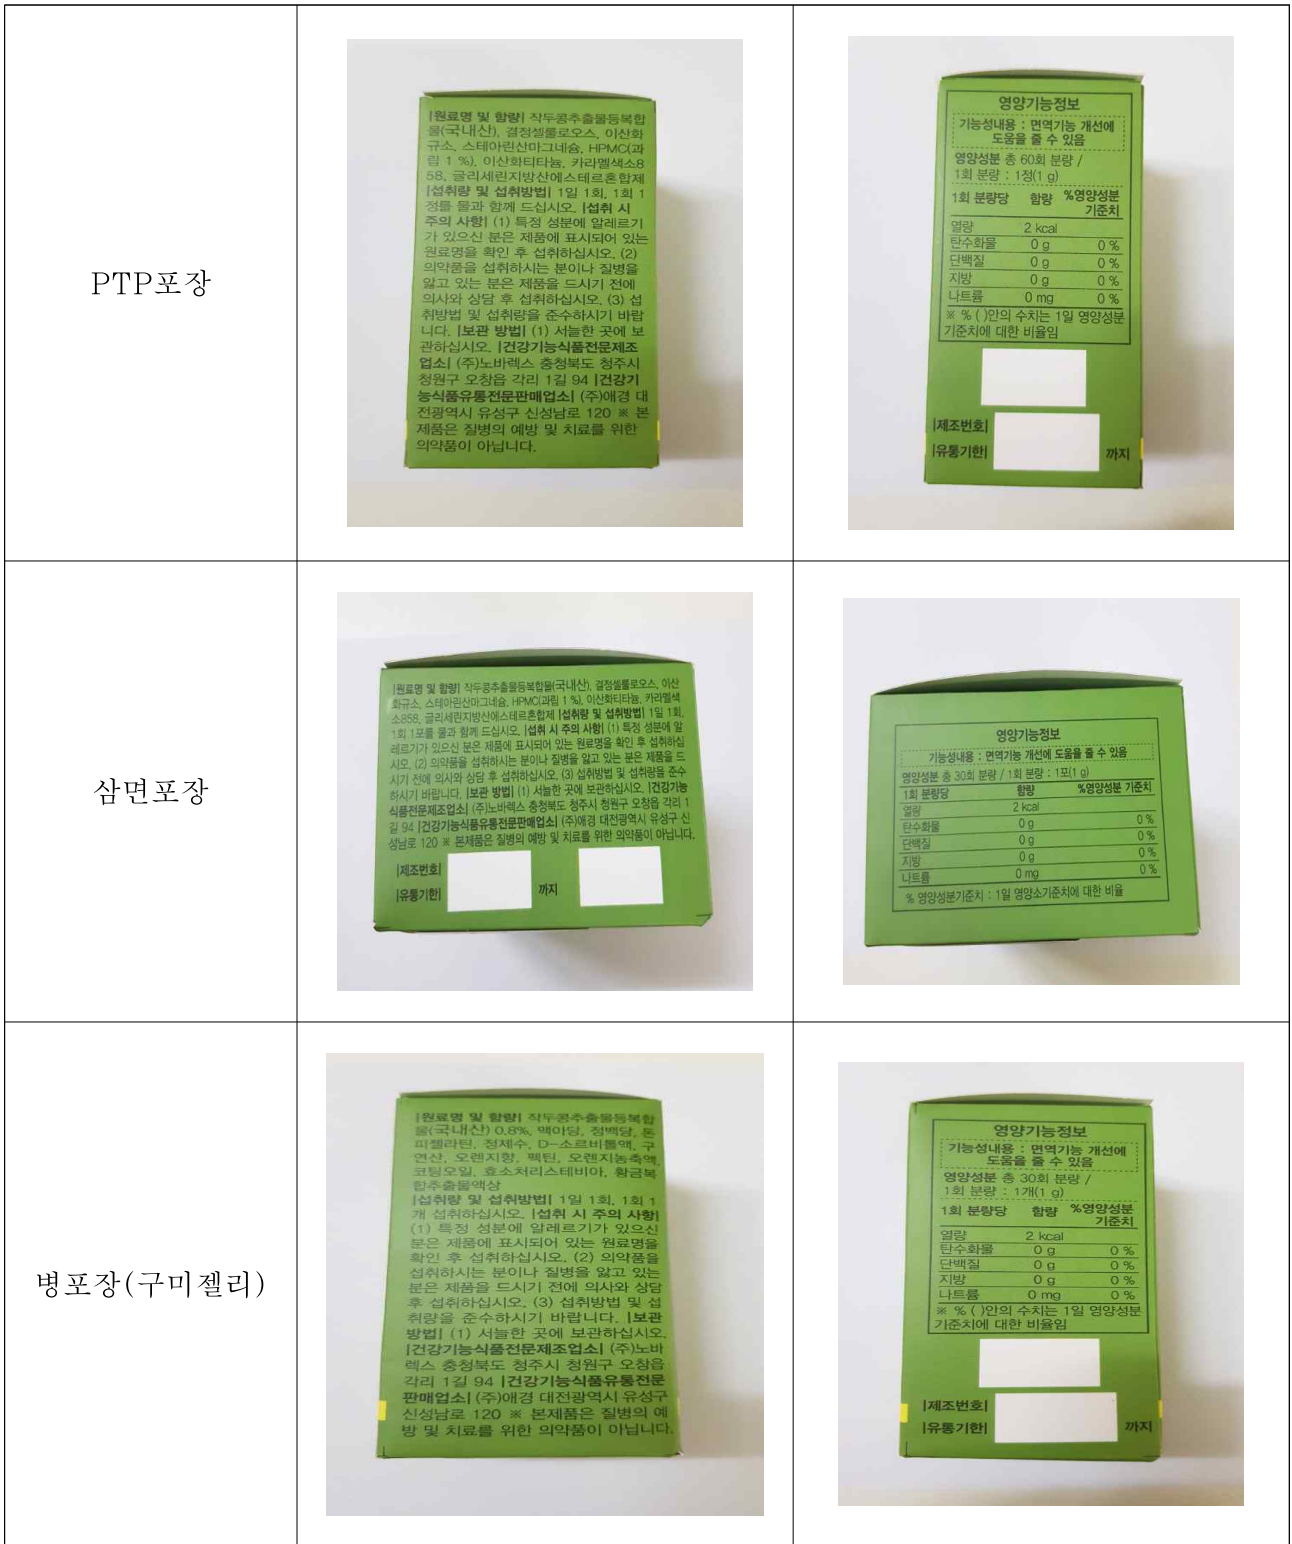 PTP포장
|원료명 및 함량| 작두콩추출물등복합
물(국내산), 결정셀룰로오스, 이산화
규소, 스테아린산마그네슘, HPMC(과
립 1 %), 이산화티타늄, 카라멜색소8
58, 글리세린지방산에스테르혼합제
|섭취량 및 섭취방법| 1일 1회, 1회 1
정를 물과 함께 드십시오. |섭취 시
주의 사항| (1) 특정 성분에 알레르기
가 있으신 분은 제품에 표시되어 있는
원료명을 확인 후 섭취하십시오. (2)
의약품을 섭취하시는 분이나 질병을
앓고 있는 분은 제품을 드시기 전에
의사와 상담 후 섭취하십시오. (3) 섭
취방법 및 섭취량을 준수하시기 바랍
니다. |보관 방법| (1) 서늘한 곳에 보
관하십시오. |건강기능식품전문제조
업소| (주)노바렉스 충청북도 청주시
청원구 오창읍 각리 1길 94 |건강기
능식품유통전문판매업소| (주)애경 대
전광역시 유성구 신성남로 120 ※ 본
제품은 질병의 예방 및 치료를 위한
의약품이 아닙니다.
영양기능정보
기능성내용 : 면역기능 개선에
도움을 줄 수 있음
영양성분 총 60회 분량 /
1회 분량 : 1정(1 g)
1회 분량당 함량 %영양성분
기준치
열량 2 kcal
탄수화물 0 g 0 %
단백질 0 g 0 %
지방 0 g 0 %
나트륨 0 mg 0 %
※ % ( )안의 수치는 1일 영양성분
기준치에 대한 비율임
|제조번호|
|유통기한| 까지
삼면포장
|원료명 및 함량| 작두콩추출물등복합물(국내산), 결정셀룰로오스, 이산
화규소, 스테아린산마그네슘, HPMC(과립 1 %), 이산화티타늄, 카라멜색
소858, 글리세린지방산에스테르혼합제 |섭취량 및 섭취방법| 1일 1회,
1회 1포를 물과 함께 드십시오. |섭취 시 주의 사항| (1) 특정 성분에 알
레르기가 있으신 분은 제품에 표시되어 있는 원료명을 확인 후 섭취하십
시오. (2) 의약품을 섭취하시는 분이나 질병을 앓고 있는 분은 제품을 드
시기 전에 의사와 상담 후 섭취하십시오. (3) 섭취방법 및 섭취량을 준수
하시기 바랍니다. |보관 방법| (1) 서늘한 곳에 보관하십시오. |건강기능
식품전문제조업소| (주)노바렉스 충청북도 청주시 청원구 오창읍 각리 1
길 94 |건강기능식품유통전문판매업소| (주)애경 대전광역시 유성구 신
성남로 120 ※ 본제품은 질병의 예방 및 치료를 위한 의약품이 아닙니다.
|제조번호|
|유통기한| 까지
영양기능정보
기능성내용 : 면역기능 개선에 도움을 줄 수 있음
영양성분 총 30회 분량 / 1회 분량 : 1포(1 g)
1회 분량당 함량 %영양성분 기준치
열량 2 kcal
탄수화물 0 g 0 %
단백질 0 g 0 %
지방 0 g 0 %
나트륨 0 mg 0 %
% 영양성분기준치 : 1일 영양소기준치에 대한 비율
병포장(구미젤리)
|원료명 및 함량| 작두콩추출물등복합
물(국내산) 0.8%, 맥아당, 정백당, 돈
피젤라틴, 정제수, D-소르비톨액, 구
연산, 오렌지향, 펙틴, 오렌지농축액,
코팅오일, 효소처리스테비아, 황금복
합추출물액상
|섭취량 및 섭취방법| 1일 1회, 1회 1
개 섭취하십시오. |섭취 시 주의 사항|
(1) 특정 성분에 알레르기가 있으신
분은 제품에 표시되어 있는 원료명을
확인 후 섭취하십시오. (2) 의약품을
섭취하시는 분이나 질병을 앓고 있는
분은 제품을 드시기 전에 의사와 상담
후 섭취하십시오. (3) 섭취방법 및 섭
취량을 준수하시기 바랍니다. |보관
방법| (1) 서늘한 곳에 보관하십시오.
|건강기능식품전문제조업소| (주)노바
렉스 충청북도 청주시 청원구 오창읍
각리 1길 94 |건강기능식품유통전문
판매업소| (주)애경 대전광역시 유성구
신성남로 120 ※ 본제품은 질병의 예
방 및 치료를 위한 의약품이 아닙니다.
영양기능정보
기능성내용 : 면역기능 개선에
도움을 줄 수 있음
영양성분 총 30회 분량 /
1회 분량 : 1개(1 g)
1회 분량당 함량 %영양성분
기준치
열량 2 kcal
탄수화물 0 g 0 %
단백질 0 g 0 %
지방 0 g 0 %
나트륨 0 mg 0 %
※ % ( )안의 수치는 1일 영양성분
기준치에 대한 비율임
|제조번호|
|유통기한| 까지